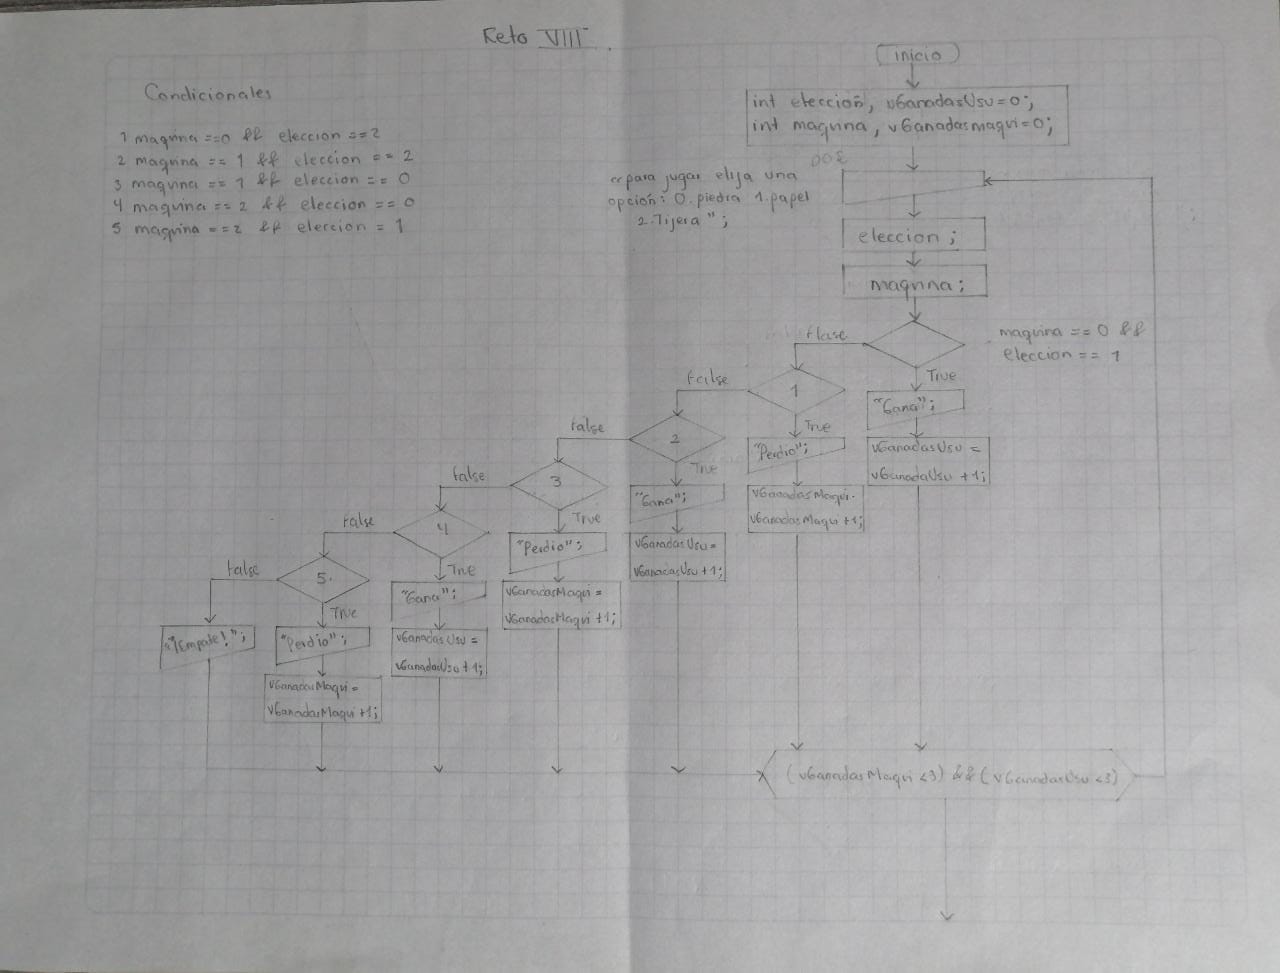 Reto VIII
Condicionales
1 maquina ==0 && eleccion ==2
2 maquina == 1 && eleccion == 2
3 maquina == 1 && eleccion == 0
4 maquina == 2 && eleccion == 0
5 maquina == 2 && eleccion = 1
inicio
int eleccion, vGanadasUsu=0;
int maquina, vGanadasmaqui=0;
"para jugar elija una
opción: 0.piedra 1.papel
2.Tijera";
eleccion;
maquina;
maquina == 0 &&
eleccion == 1
Flase
True
"Gana";
vGanadasUsu =
vGanadaUsu +1;
1
False
True
"Perdio";
vGanadasMaqui.
vGanadasMaqui +1;
2
False
True
"Gana";
vGanadasUsu =
vGanadasUsu +1;
3
False
True
"Perdio";
vGanadasMaqui =
vGanadasMaqui +1;
4
False
True
"Gana";
vGanadasUsu =
vGanadasUsu +1;
5.
False
True
"Perdio";
vGanadasMaqui =
vGanadasMaqui +1;
"¡Empate!";
(vGanadasMaqui <3) && (vGanadasUsu <3)